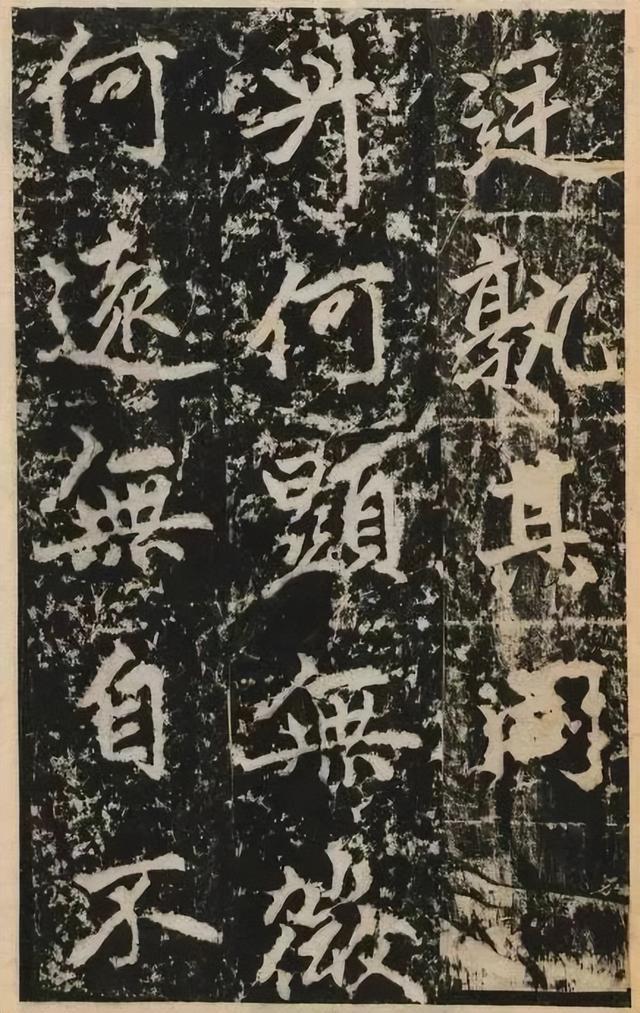 孰其
升何顯無微
何遠無自不